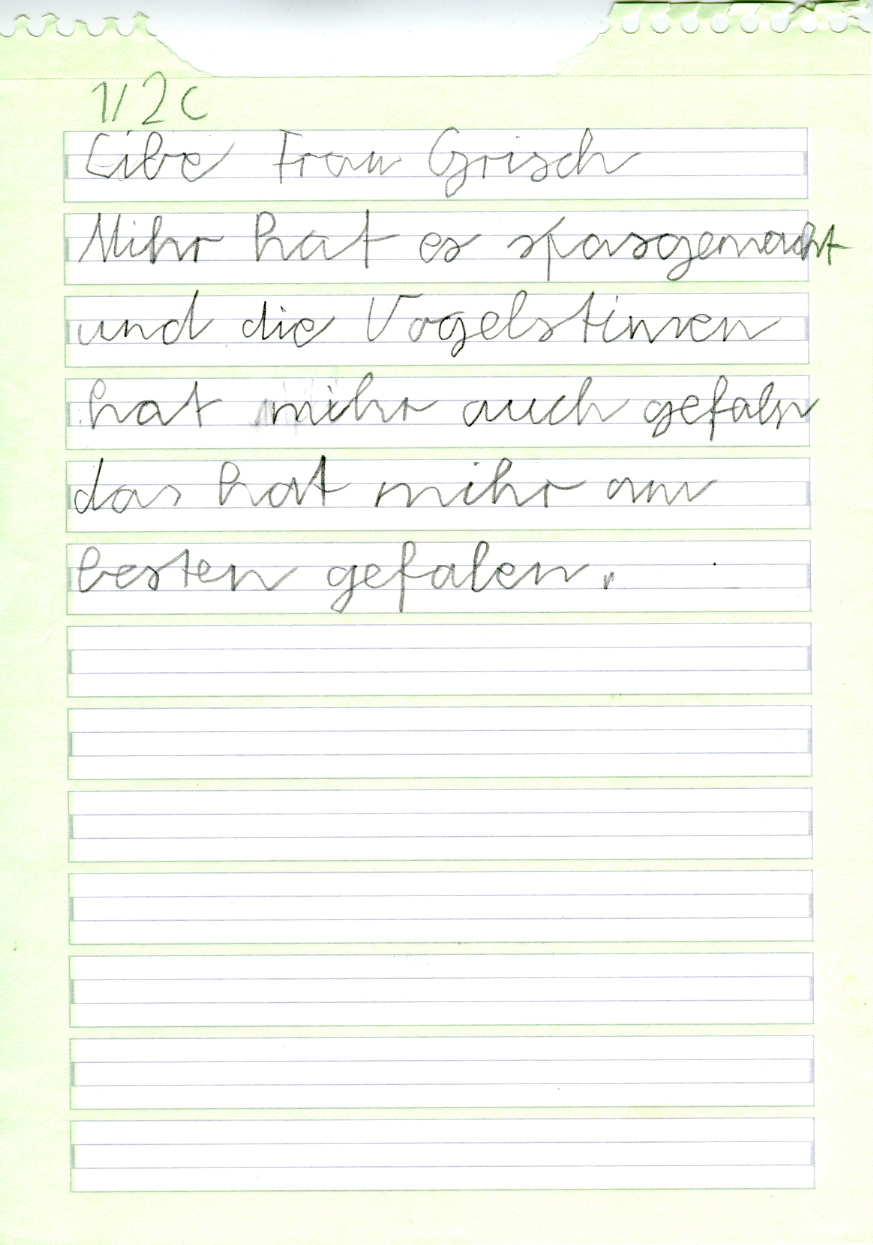 1/2c
Libe Frau Grisch
Mihr hat es spasgemacht
und die Vogelstimen
hat mihr auch gefaln
das hat mihr am
besten gefalen.